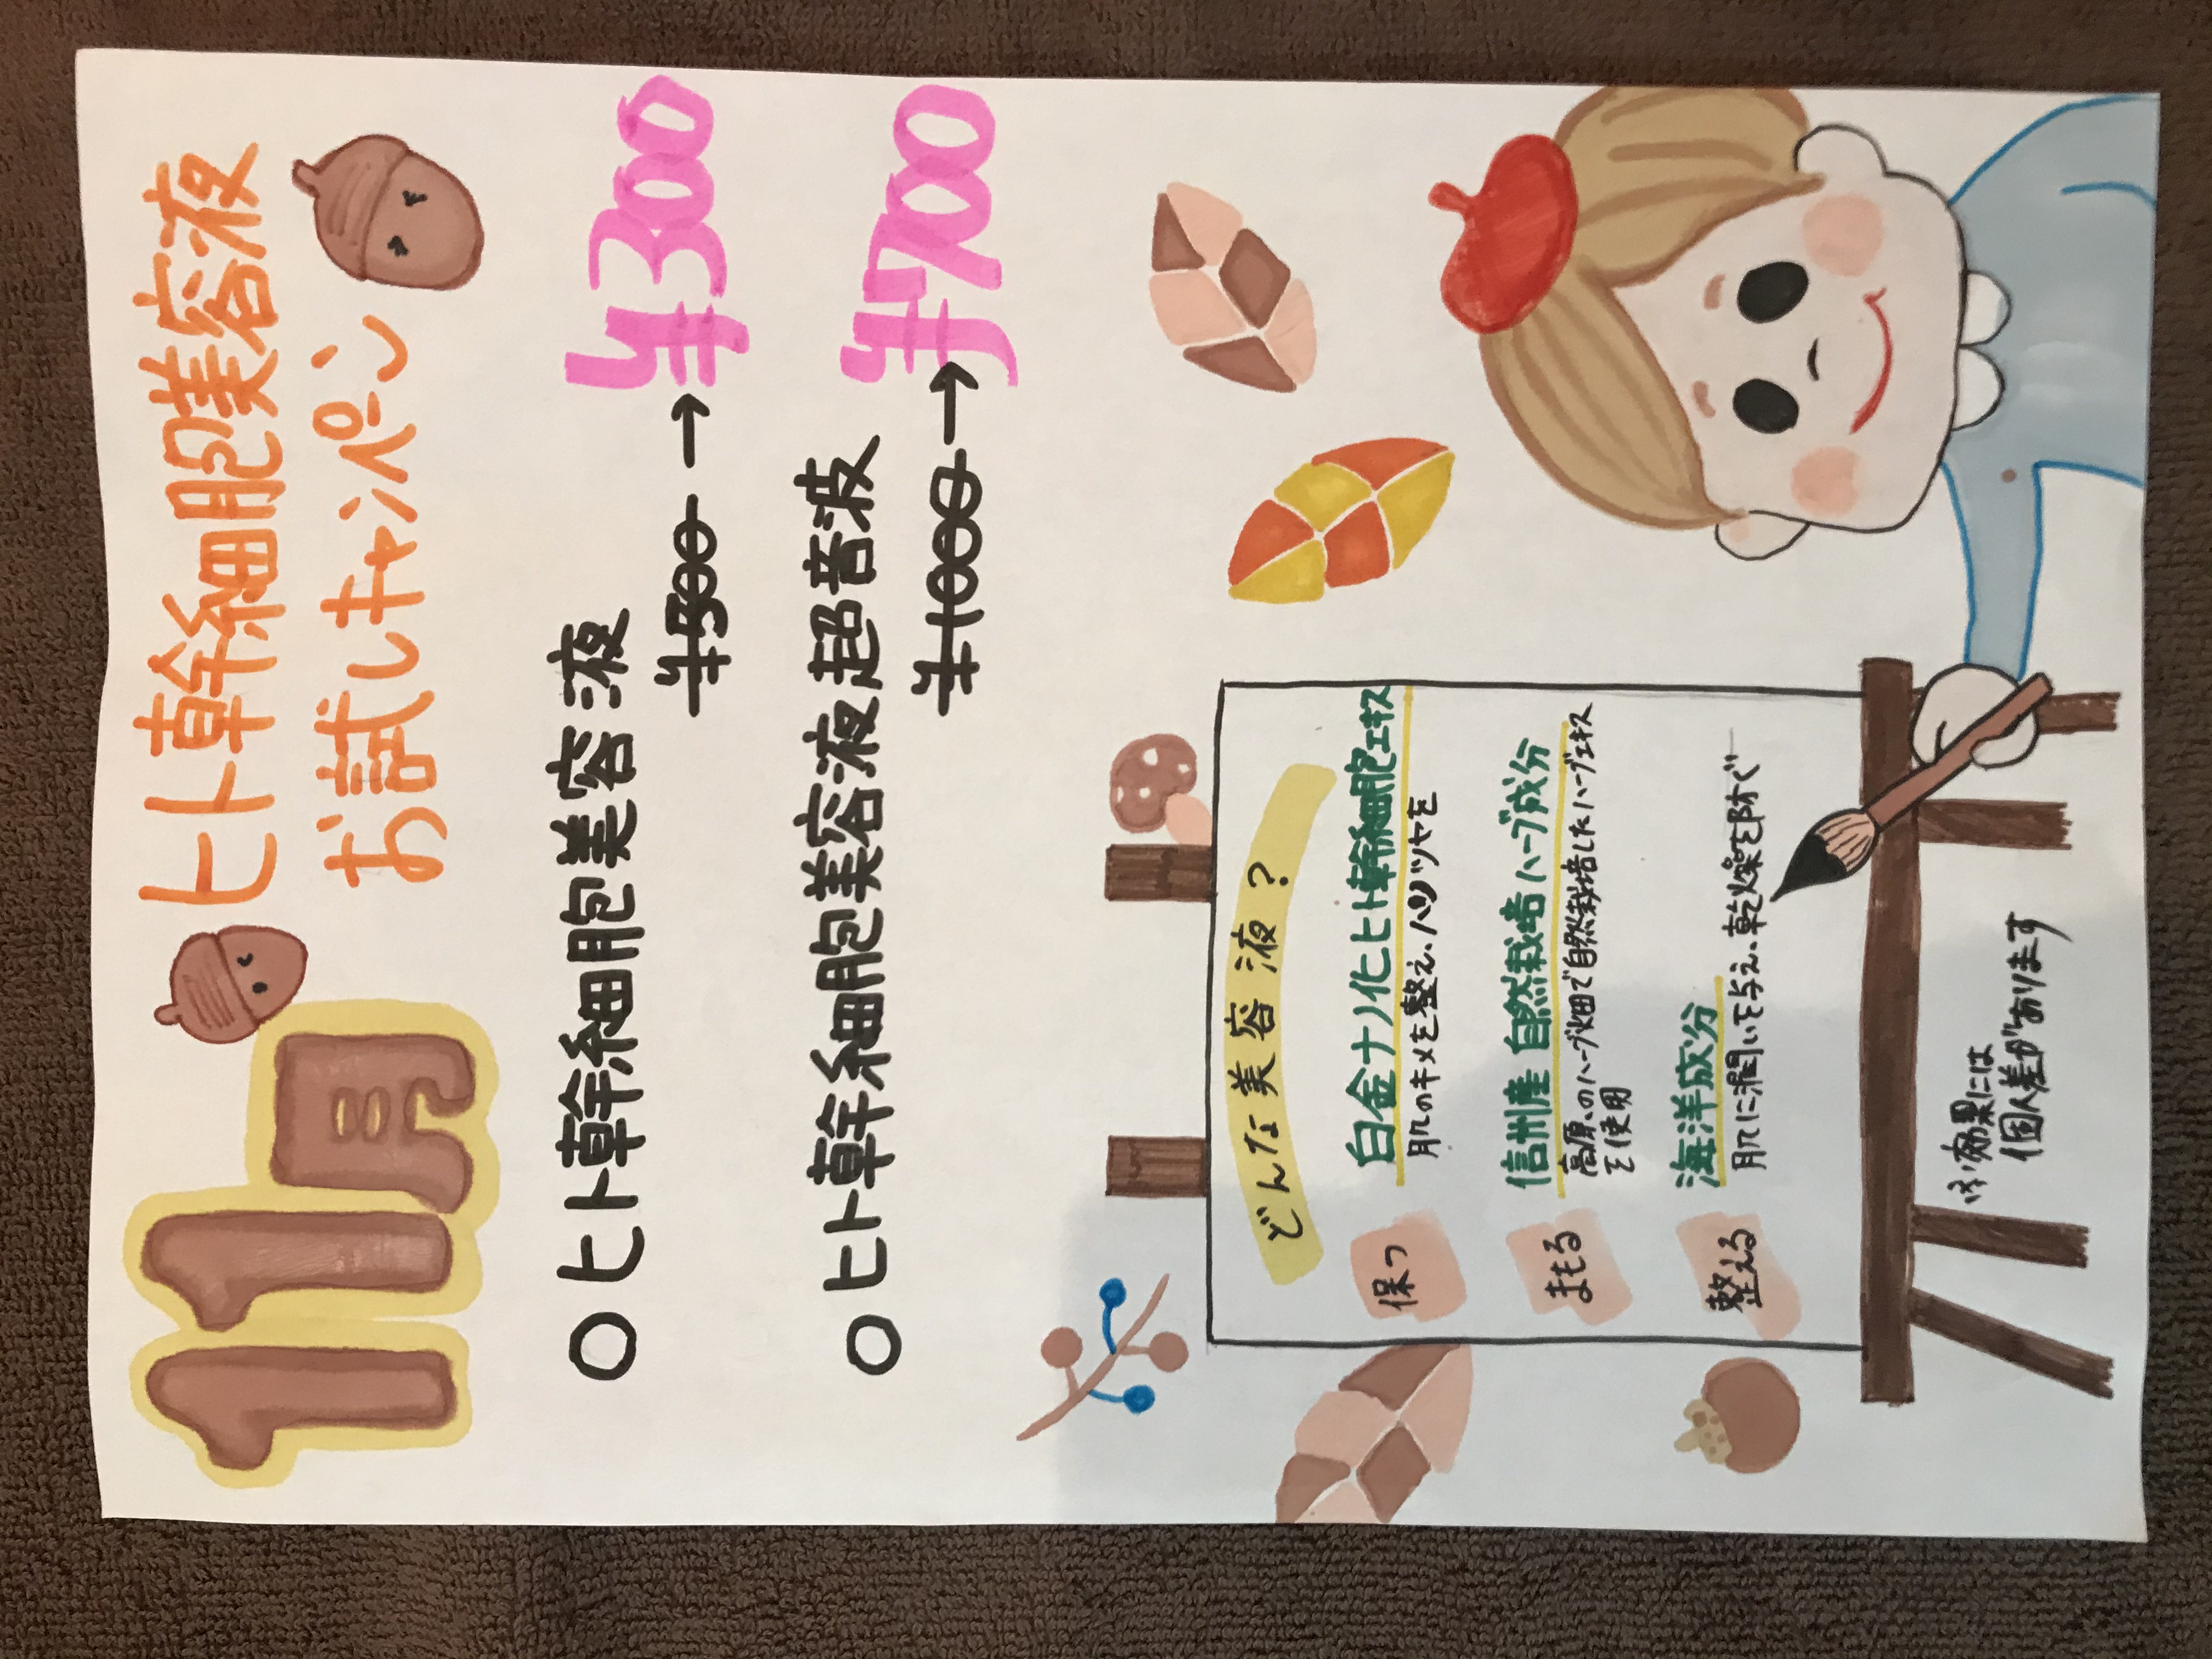 11月
ヒト幹細胞美容液
お試しキャンペーン
○ヒト幹細胞美容液
¥500→¥300
○ヒト幹細胞美容液超音波
¥1000→¥700
どんな美容液?
保つ
白金ナノ化ヒト幹細胞エキス
肌のキメを整え、ハリツヤを
まもる
信州産 自然栽培ハーブ成分
高原のハーブ畑で自然栽培したハーブエキス
を使用
整える
海洋成分
肌に潤いを与え、乾燥を防ぐ
※効果には
個人差があります